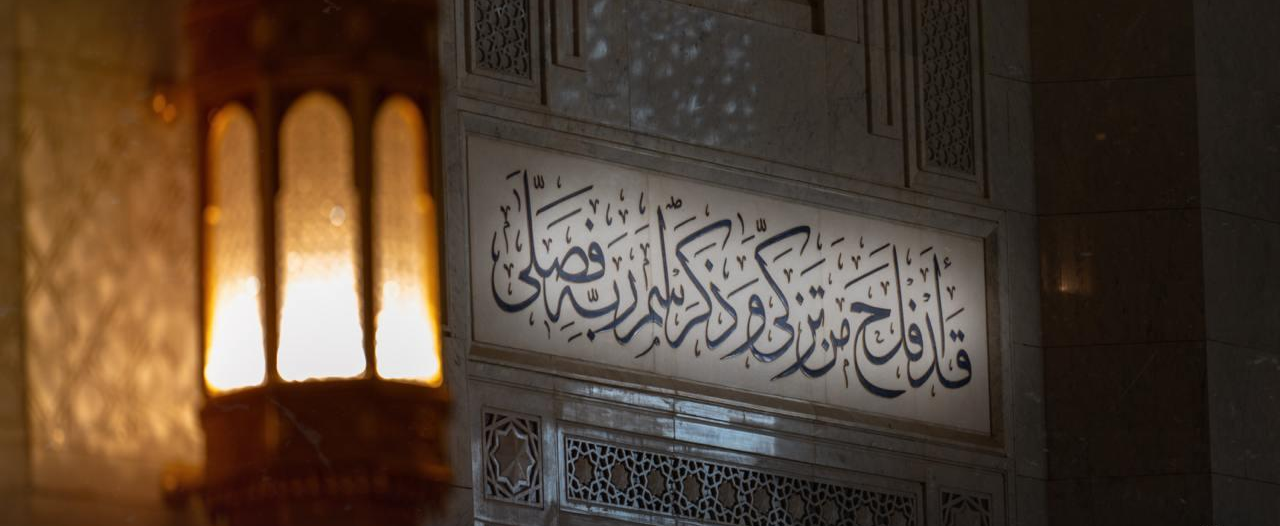 قد أفلح من تزكى وذكر اسم ربه فصلى